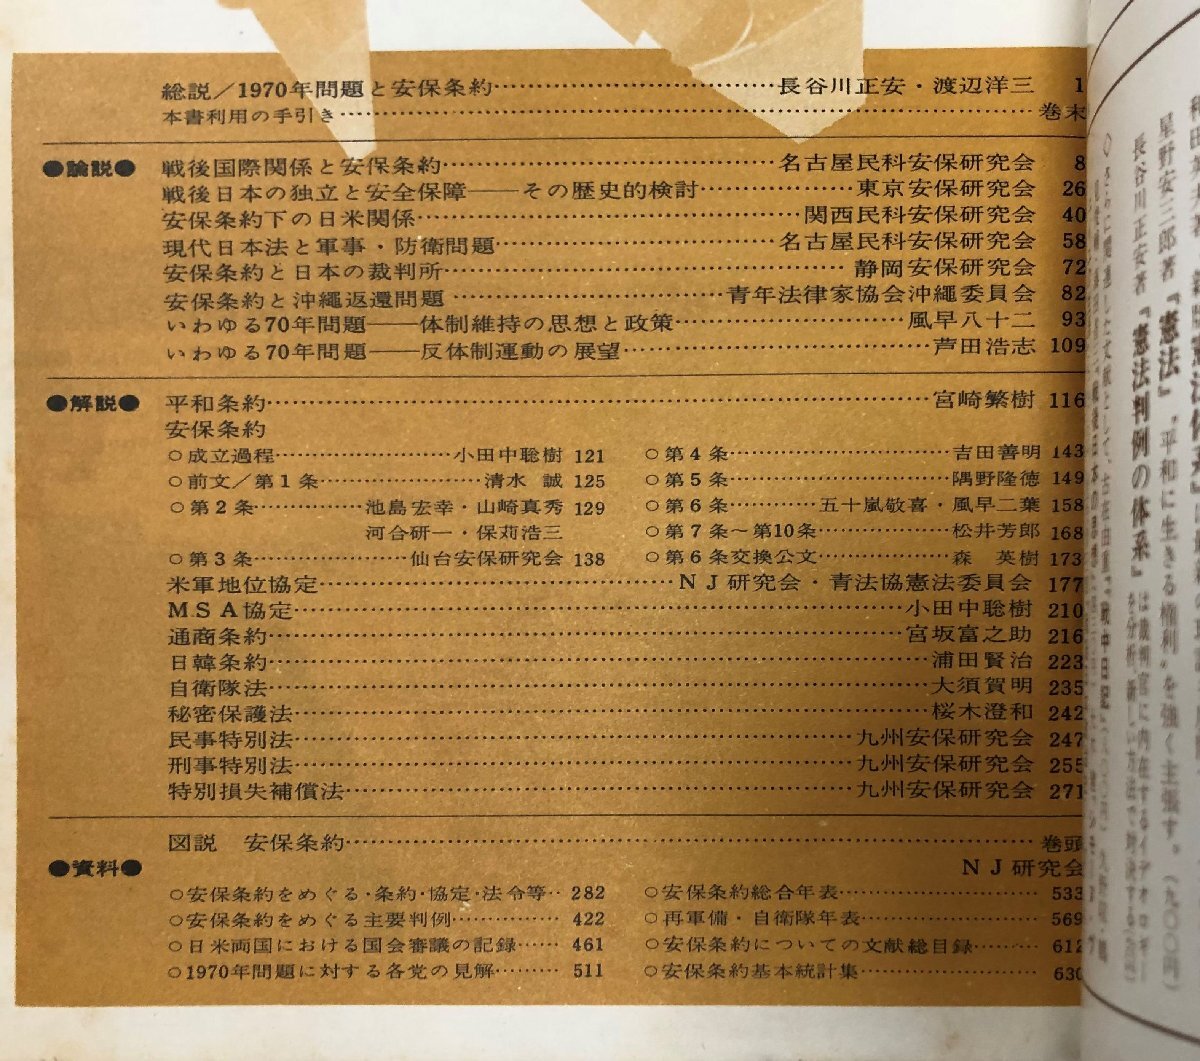 総説／1970年問題と安保条約……………長谷川正安・渡辺洋三 1
本書利用の手引き……………巻末
●論説● 戦後国際関係と安保条約……………名古屋民科安保研究会 8
戦後日本の独立と安全保障――その歴史的検討……………東京安保研究会 26
安保条約下の日米関係……………関西民科安保研究会 40
現代日本法と軍事・防衛問題……………名古屋民科安保研究会 58
安保条約と日本の裁判所……………静岡安保研究会 72
安保条約と沖縄返還問題……………青年法律家協会沖縄委員会 82
いわゆる70年問題――体制維持の思想と政策……………風早八十二 93
いわゆる70年問題――反体制運動の展望……………芦田浩志 109
●解説● 平和条約……………宮崎繁樹 116
安保条約
○成立過程……………小田中聡樹 121
○前文／第1条……………清水 誠 125
○第2条……………池島宏幸・山崎真秀 129
河合研一・保苅浩三
○第3条……………仙台安保研究会 138
○第4条……………吉田善明 143
○第5条……………隅野隆徳 149
○第6条……………五十嵐敬喜・風早二葉 158
○第7条～第10条……………松井芳郎 168
○第6条交換公文……………森 英樹 173
米軍地位協定……………NJ研究会・青法協憲法委員会 177
MSA協定……………小田中聡樹 210
通商条約……………宮坂富之助 216
日韓条約……………浦田賢治 223
自衛隊法……………大須賀明 235
秘密保護法……………桜木澄和 242
民事特別法……………九州安保研究会 247
刑事特別法……………九州安保研究会 255
特別損失補償法……………九州安保研究会 271
図説 安保条約……………巻頭
●資料● NJ研究会
○安保条約をめぐる・条約・協定・法令等‥ 282
○安保条約をめぐる主要判例……………422
○日米両国における国会審議の記録…… 461
○1970年問題に対する各党の見解……… 511
○安保条約総合年表……………533
○再軍備・自衛隊年表……………569
○安保条約についての文献総目録………612
○安保条約基本統計集……………630
星野安三郎著『憲法』"平和に生きる権利"を強く主張す。（九〇〇円）
長谷川正安著『憲法判例の体系』